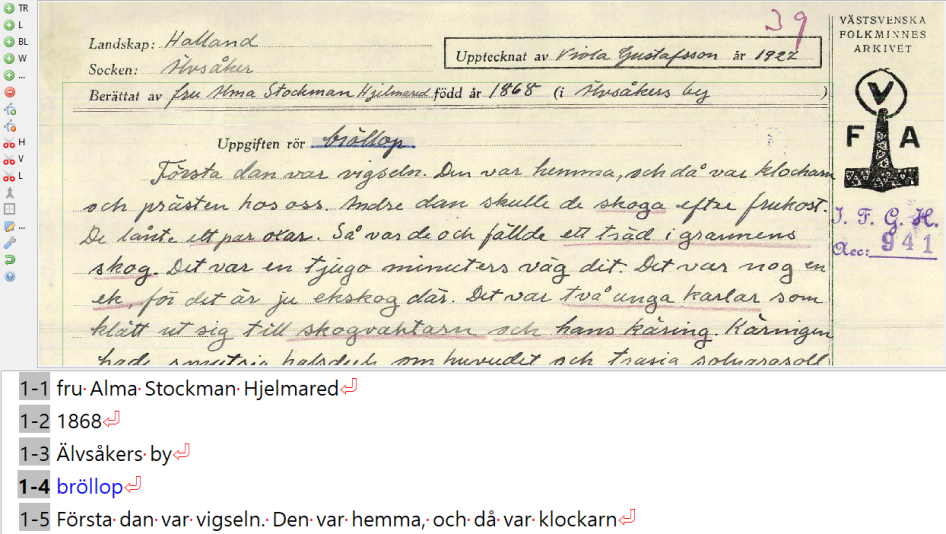 TR
L
BL
W
...
H
V
L
...
39
VÄSTSVENSKA
FOLKMINNES
ARKIVET
V
F A
I. F. G. H.
Acc: 941
Landskap: Halland
Upptecknat av Viola Gustafsson år 1922
Socken: Älvsåker
Berättat av fru Alma Stockman Hjelmared född år 1868 (i Älvsåkers by )
Uppgiften rör bröllop
Första dan var vigseln. Den var hemma, och då var klockarn
och prästen hos oss. Andre dan skulle de skoga efter frukost.
De lånte ett par oxar. Så var de och fällde ett träd i grannens
skog. Det var en tjugo minuters väg dit. Det var nog en
ek, för det är ju ekskog där. Det var två unga karlar som
klätt ut sig till skogvaktarn och hans käring. Käringen
hade smutsig halsduk om huvudet och trasia
1-1 fru Alma Stockman Hjelmared
1-2 1868
1-3 Älvsåkers by
1-4 bröllop
1-5 Första dan var vigseln. Den var hemma, och då var klockarn